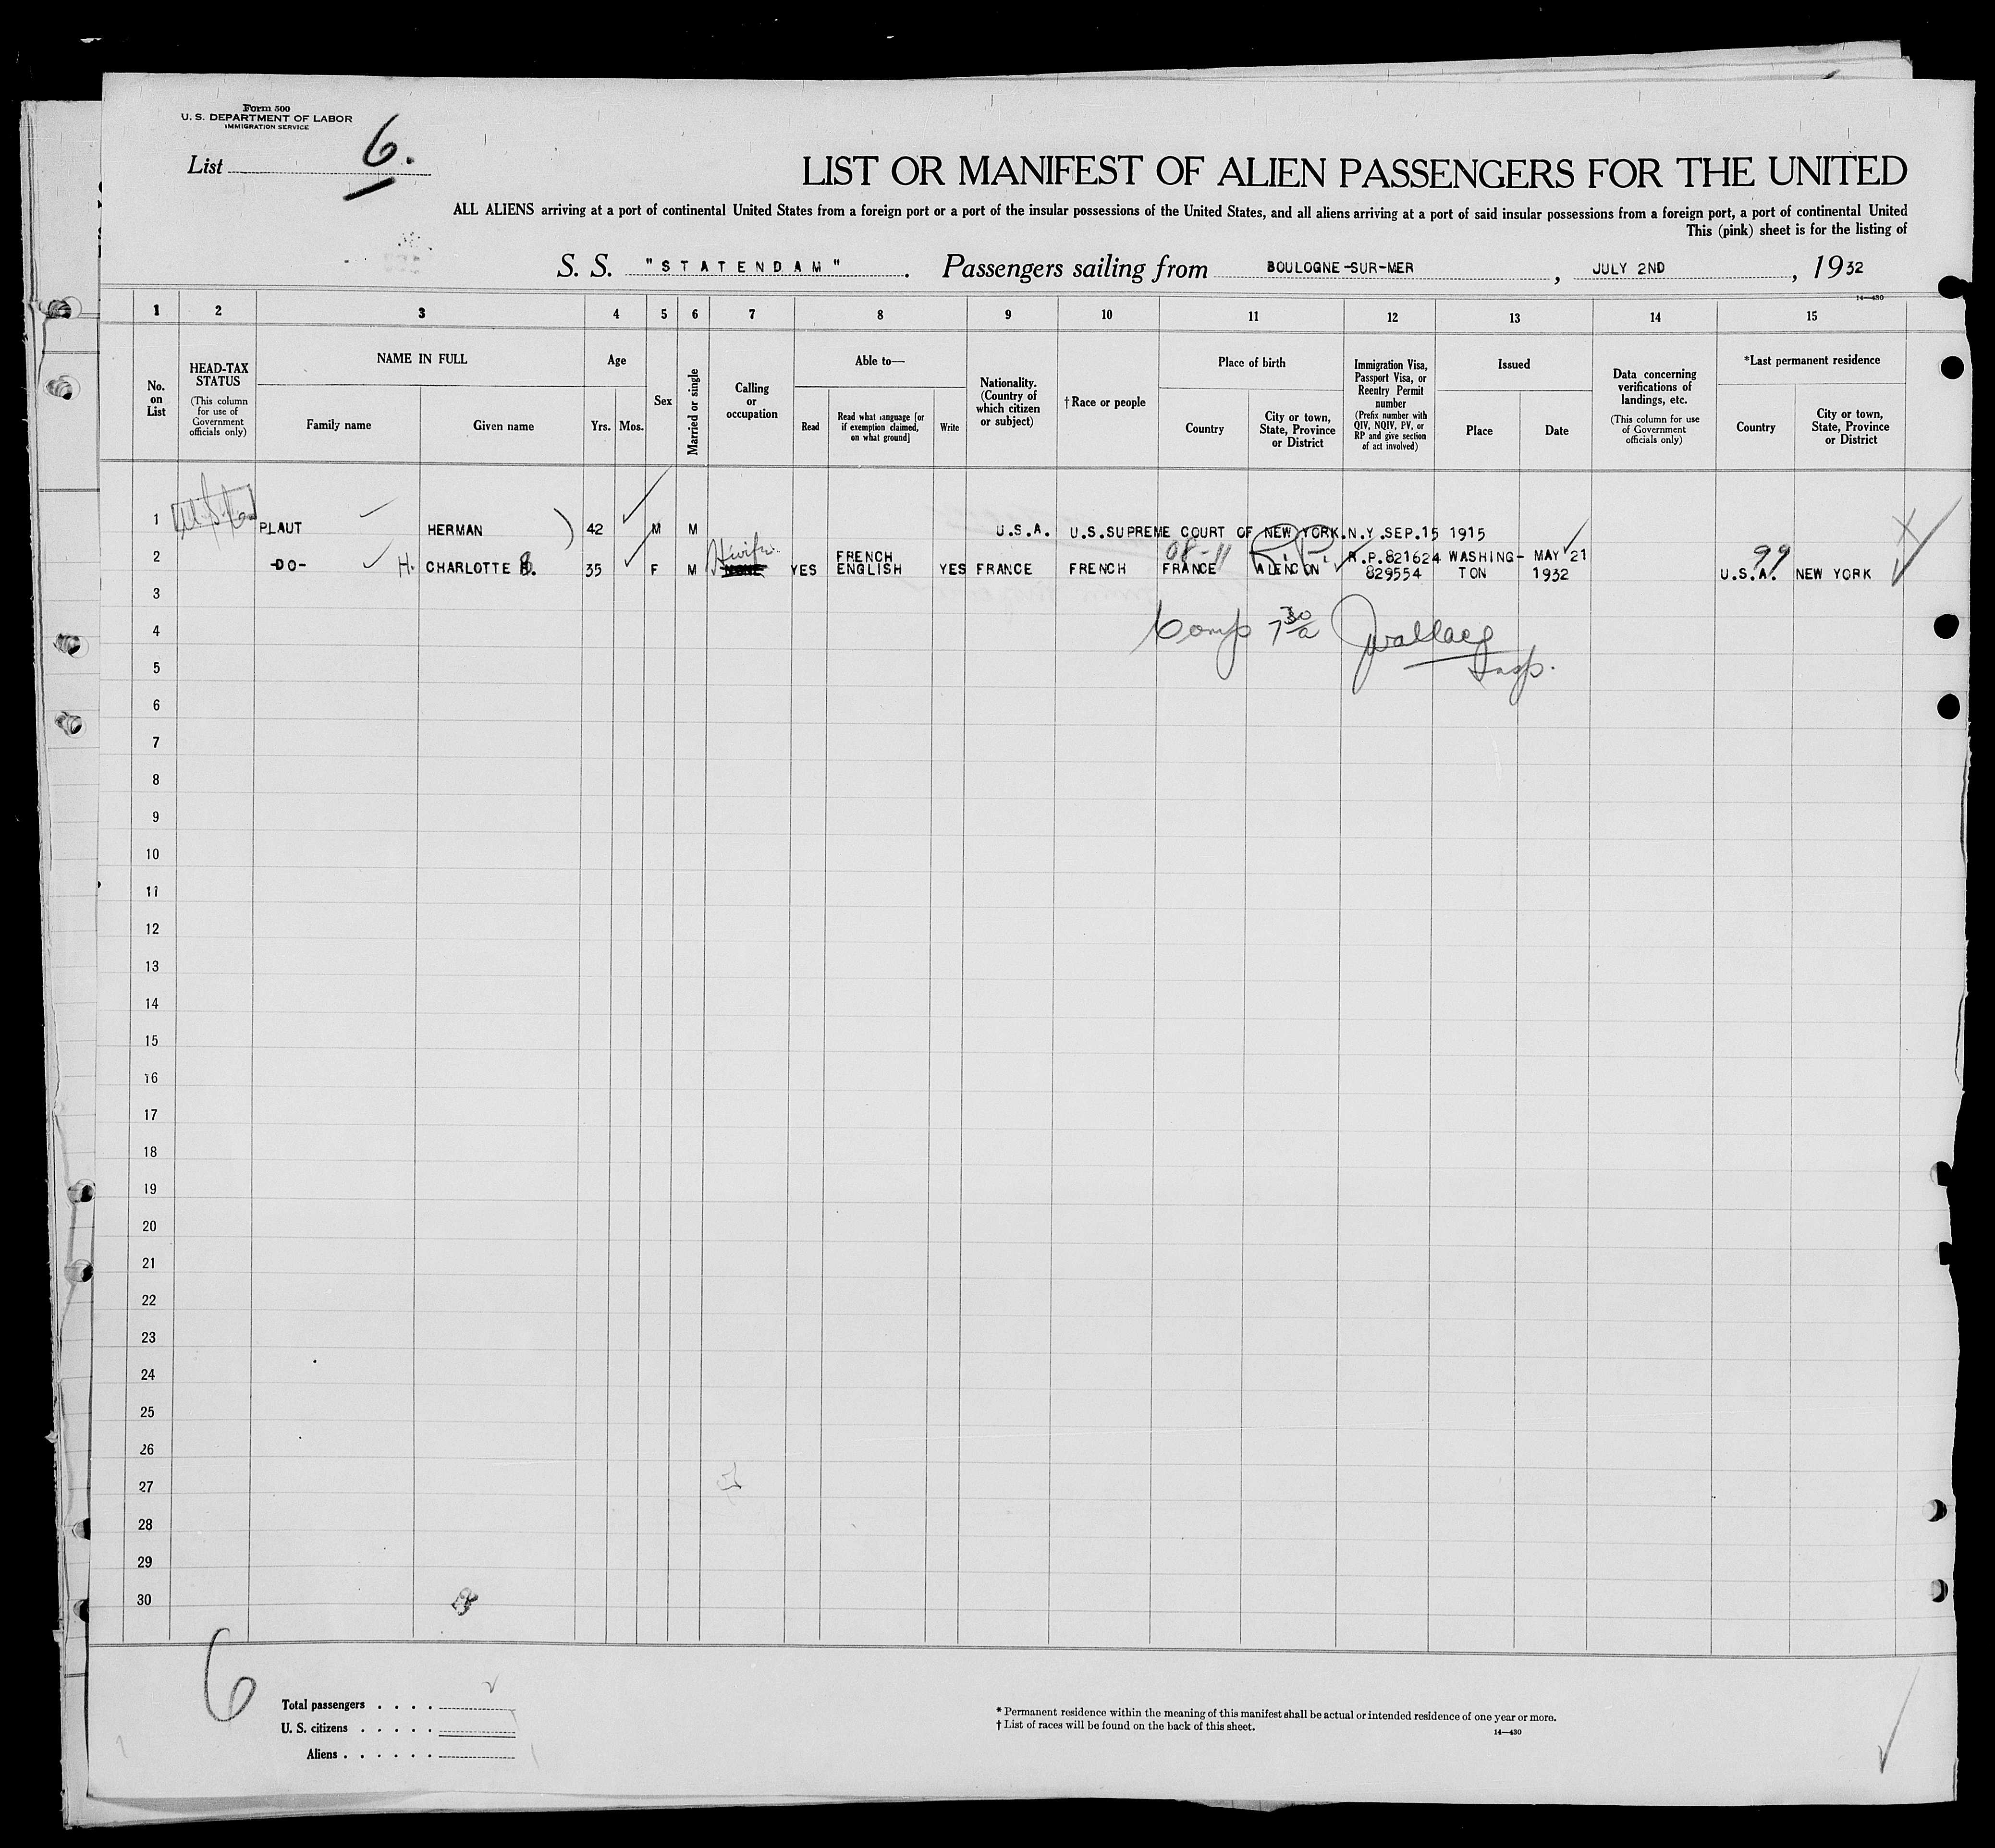 Form 500
U. S. DEPARTMENT OF LABOR
IMMIGRATION SERVICE
List 6.
LIST OR MANIFEST OF ALIEN PASSENGERS FOR THE UNITED
ALL ALIENS arriving at a port of continental United States from a foreign port or a port of the insular possessions of the United States, and all aliens arriving at a port of said insular possessions from a foreign port, a port of continental United
This (pink) sheet is for the listing of
S. S. "STATENDAM". Passengers sailing from BOULOGNE-SUR-MER, JULY 2ND, 1932
14—430
1 2 3 4 5 6 7 8 9 10 11 12 13 14 15
No. on List
HEAD-TAX STATUS (This column for use of Government officials only)
NAME IN FULL
Family name
Given name
Age
Yrs. Mos.
Sex
Married or single
Calling or occupation
Able to—
Read
Read what language [or if exemption claimed, on what ground]
Write
Nationality. (Country of which citizen or subject)
† Race or people
Place of birth
Country
City or town, State, Province or District
Immigration Visa, Passport Visa, or Reentry Permit number (Prefix number with QIV, NQIV, PV, or RP and give section of act involved)
Issued
Place
Date
Data concerning verifications of landings, etc. (This column for use of Government officials only)
*Last permanent residence
Country
City or town, State, Province or District
1 PLAUT HERMAN ) 42 M M U.S.A. U.S.SUPREME COURT OF NEW YORK.N.Y.SEP.15 1915
Hwife. 08-11 R.P. 99
2 -DO- H. CHARLOTTE 35 F M NONE YES FRENCH ENGLISH YES FRANCE FRENCH FRANCE ALENCON R.P.821624 829554 WASHINGTON MAY 21 1932 U.S.A. NEW YORK
3
4 Comp 7 30/a Wallace
5 Insp.
6
7
8
9
10
11
12
13
14
15
16
17
18
19
20
21
22
23
24
25
26
27
28
29
30
6
Total passengers . . . .
U. S. citizens . . . . .
Aliens . . . . . .
* Permanent residence within the meaning of this manifest shall be actual or intended residence of one year or more.
† List of races will be found on the back of this sheet.
14—430